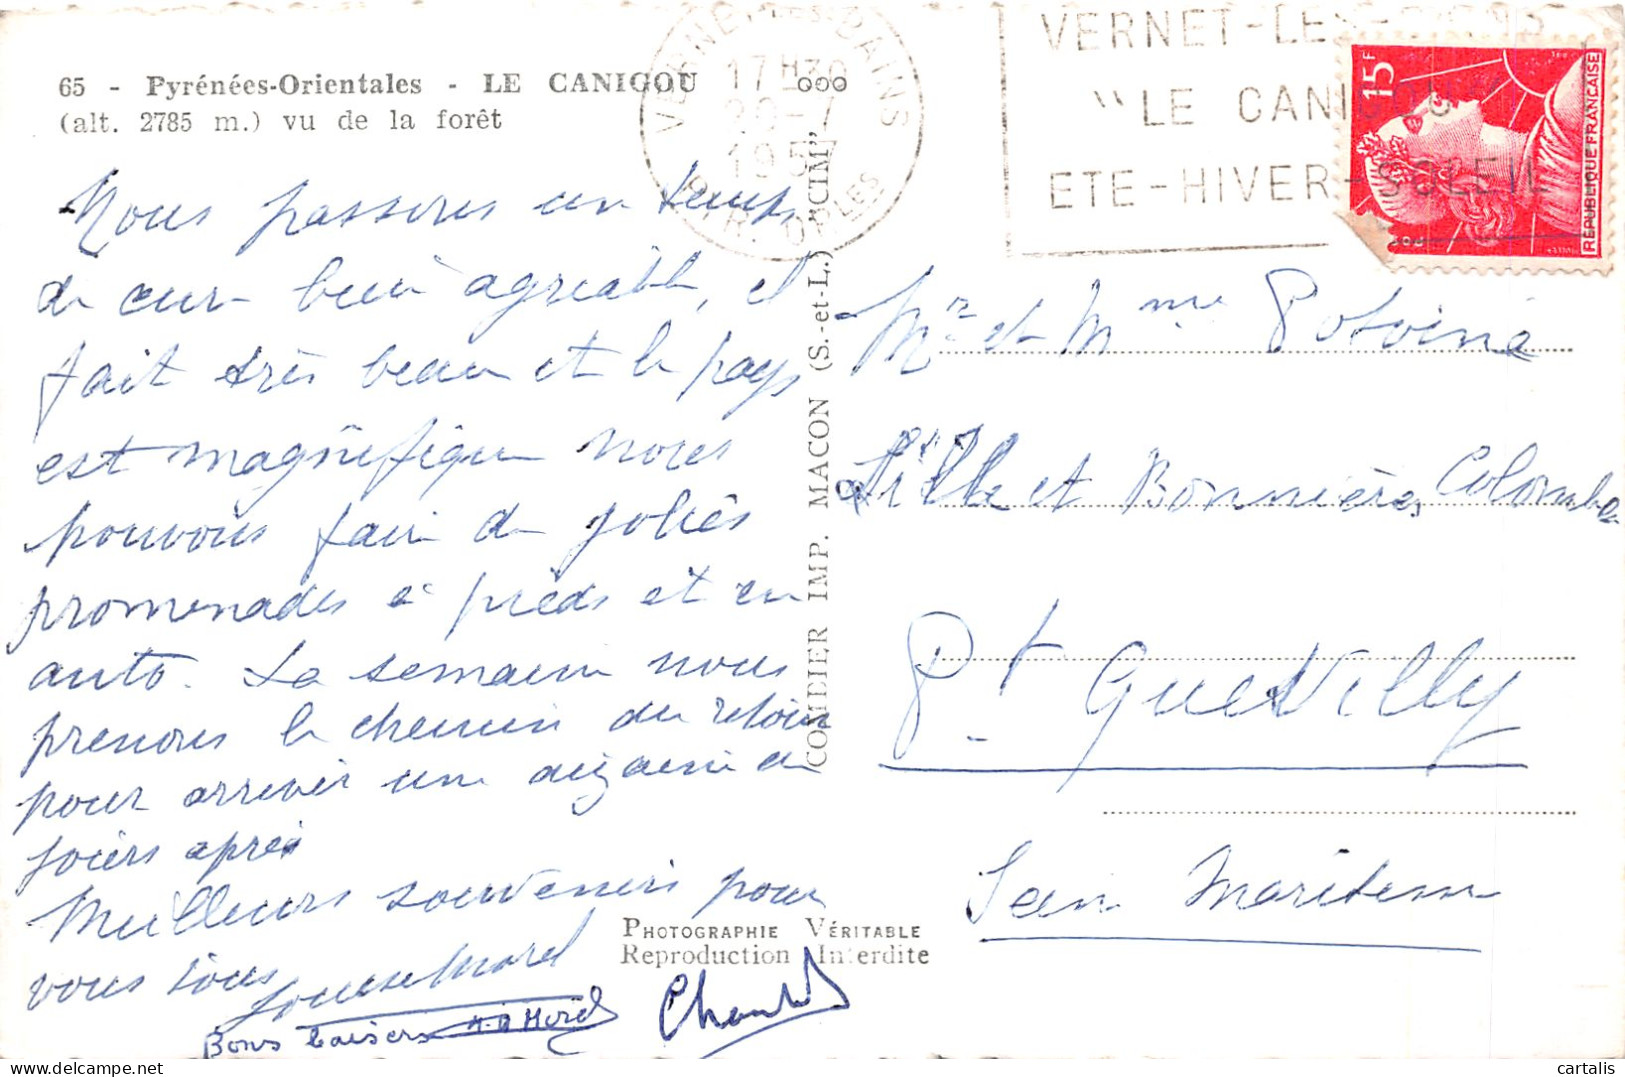 65 - Pyrénées-Orientales - LE CANIGOU
(alt. 2785 m.) vu de la forêt
VERNET-LES-BAINS
17H30
20-7
1957
PYR. ORLES
VERNET-LES-BAINS
"LE CANIGOU"
ETE-HIVER-SOLEIL
15F
REPUBLIQUE FRANÇAISE
Nous passons un temps
de cure bien agréable, il
fait très beau et le pays
est magnifique nous
pouvons faire de jolies
promenades à pieds et en
auto. La semaine nous
prenons le chemin du retour
pour arriver une dizaine de
jours après
Meilleurs souvenirs pour
vous tous
Louise Morel
Bons baisers
Morel
Chantal
COMBIER IMP. MACON (S.-et-L.) "CIM"
PHOTOGRAPHIE VÉRITABLE
Reproduction Interdite
Mr et Mme Potoine
et Bonnières Colombe
Pt Quevilly
Seine Maritime
cartalis